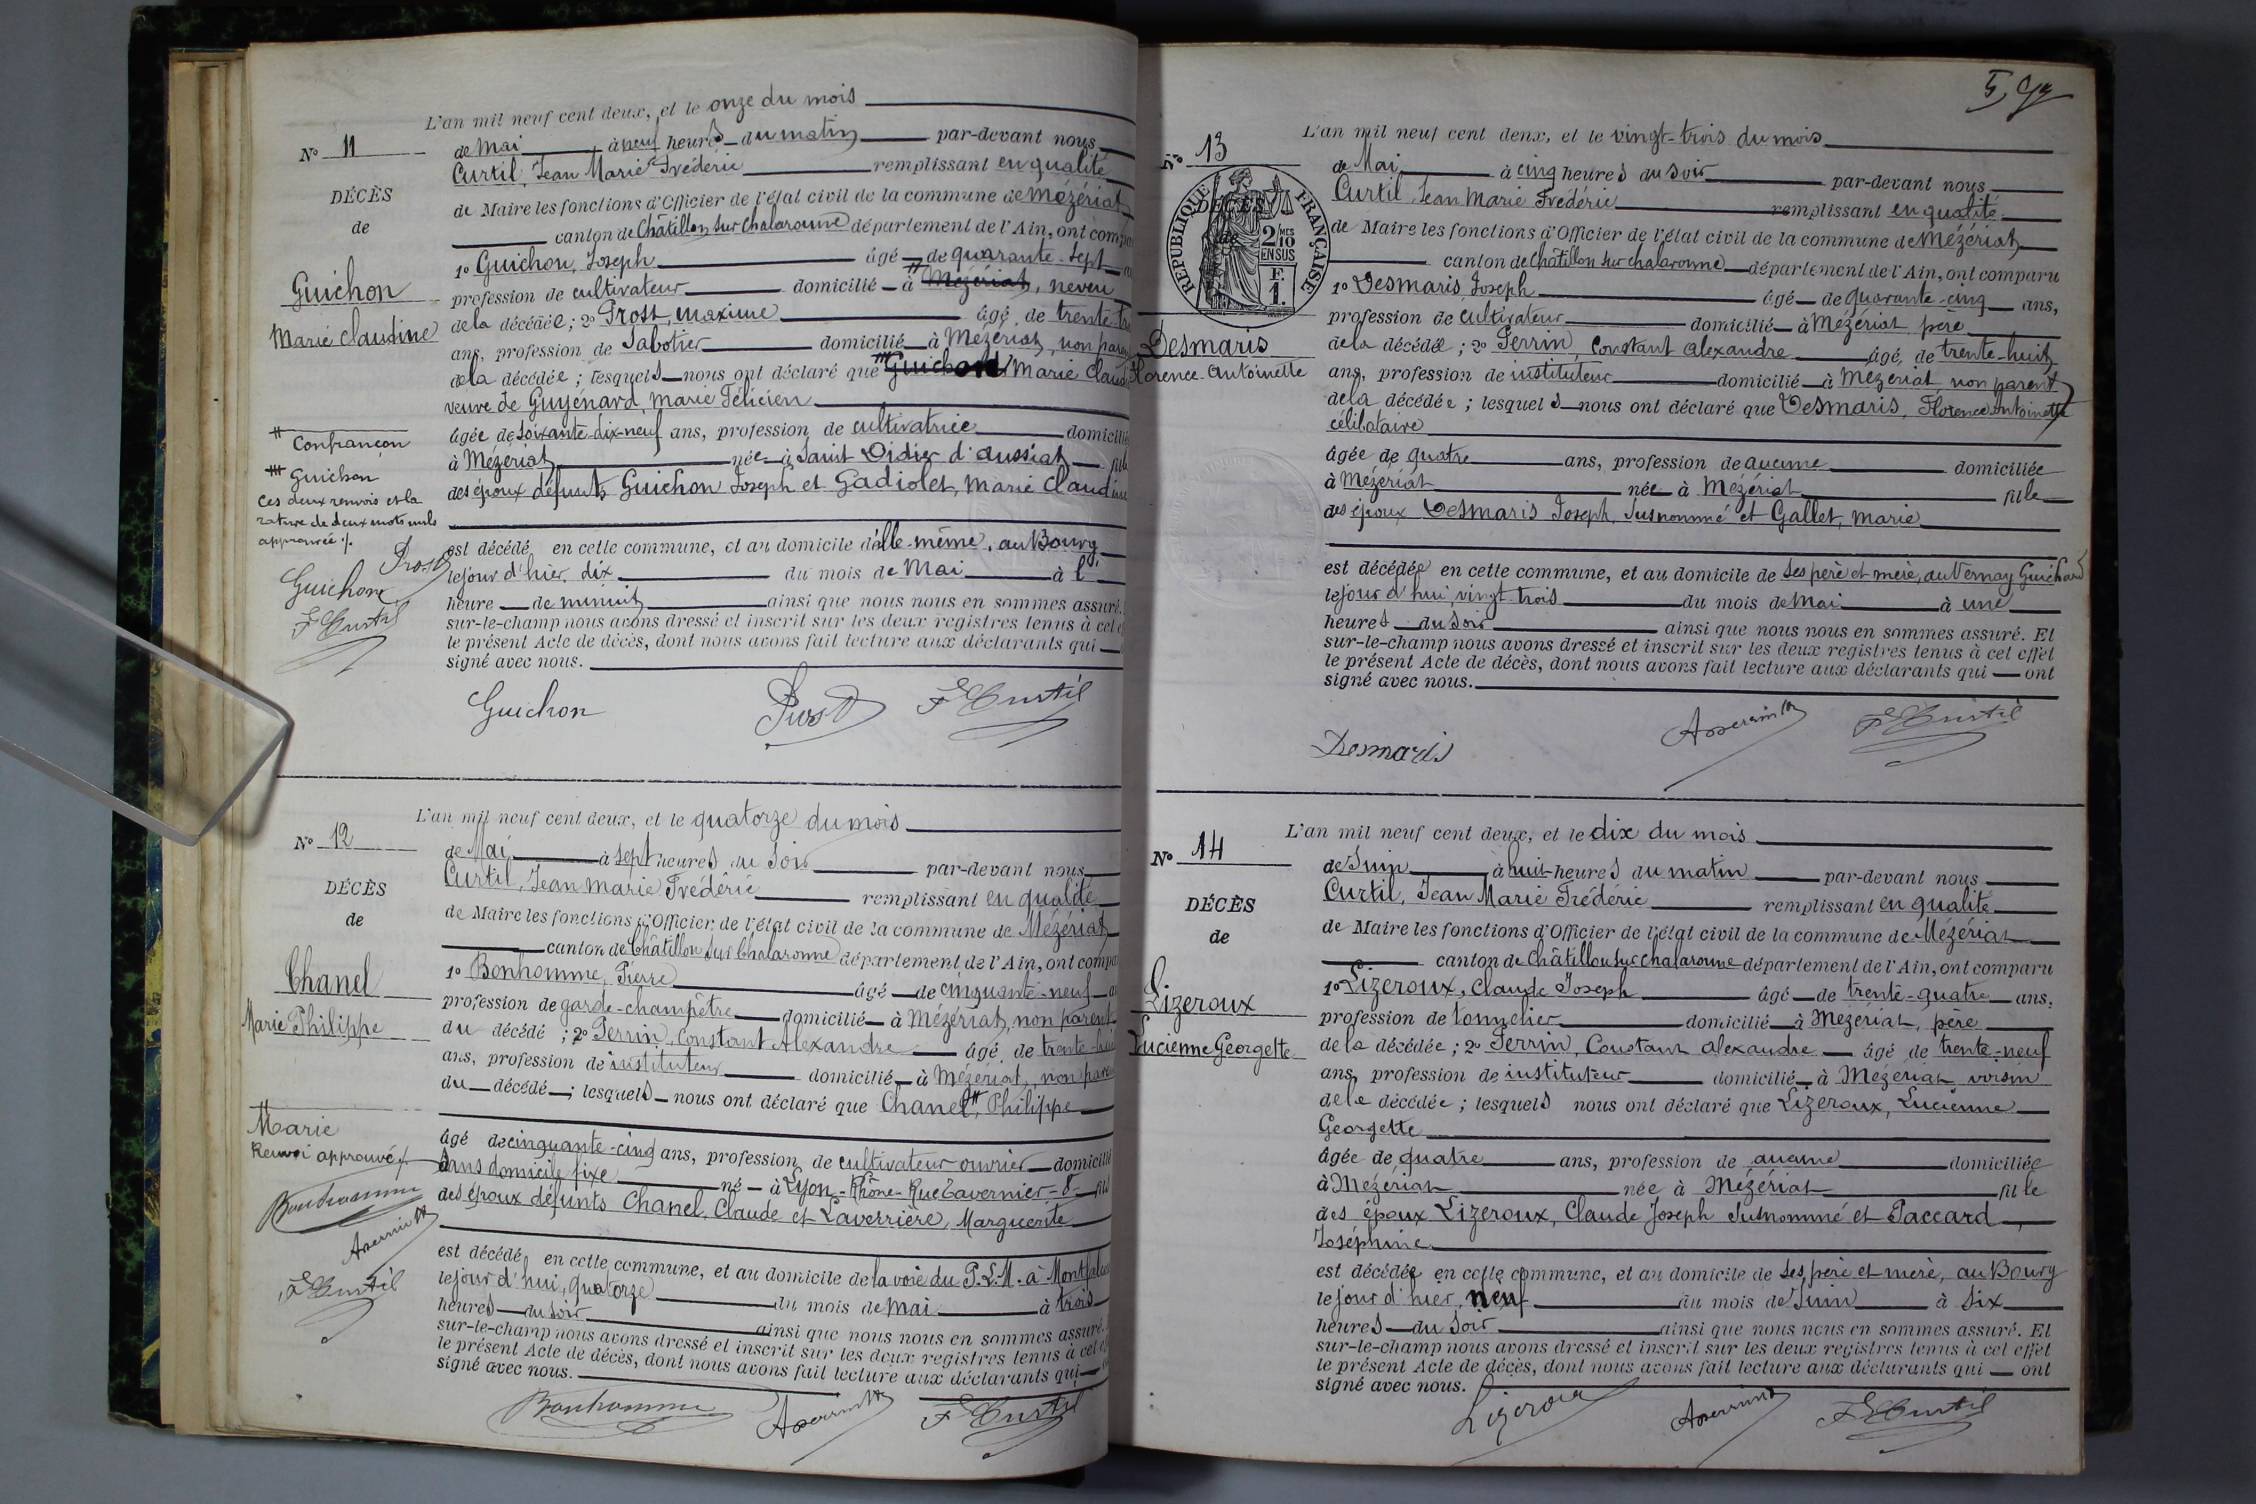 L'an mil neuf cent deux, et le onze du mois
No 11
de Mai à neuf heures du matin par-devant nous
Curtil, Jean Marie Frédéric remplissant en qualité
DÉCÈS
de Maire les fonctions d'Officier de l'état civil de la commune de Mézériat
de
canton de Châtillon sur Chalaronne département de l'Ain, ont
1o Guichon, Joseph âgé de quarante-sept
Guichon
profession de cultivateur domicilié à Mézériat, neveu
Marie Claudine
de la décédée; 2o Prost, Maxime âgé de
ans, profession de Sabotier domicilié à Mézériat, non
de la décédée; lesquels nous ont déclaré que Guichon Marie
veuve de Guyénard, Marie Félicien
âgée de soixante-dix-neuf ans, profession de cultivatrice
Confrançon
à Mézériat née à Saint Didier d'Aussiat
Guichon
des époux défunts Guichon Joseph et Gadiolet, Marie Claudine
Ces deux renvois et la
rature de deux mots nuls
approuvée
est décédé en cette commune, et au domicile d'elle-même, au Bourg
Prost
le jour d'hier, dix du mois de Mai à l'
Guichon
heure de minuit ainsi que nous nous en sommes assuré.
F Curtil
sur-le-champ nous avons dressé et inscrit sur les deux registres tenus à cet
le présent Acte de décès, dont nous avons fait lecture aux déclarants qui
signé avec nous.
Guichon Prost F Curtil
L'an mil neuf cent deux, et le quatorze du mois
No 12
de Mai à sept heures du soir par-devant nous
Curtil, Jean Marie Frédéric remplissant en qualité
DÉCÈS
de Maire les fonctions d'Officier de l'état civil de la commune de Mézériat
de
canton de Châtillon sur Chalaronne département de l'Ain, ont
1o Bonhomme, Pierre âgé de cinquante-neuf
Chanel
profession de garde-champêtre domicilié à Mézériat, non parent
Marie Philippe
du décédé; 2o Perrin, Constant Alexandre âgé de trente-
ans, profession de instituteur domicilié à Mézériat, non
du décédé; lesquels nous ont déclaré que Chanel, Philippe
Marie
Renvoi approuvé
âgé de cinquante-cinq ans, profession de cultivateur ouvrier
sans domicile fixe né à Lyon - Rhône - Rue Tavernier - 8 -
des époux défunts Chanel, Claude et Laverrière, Marguerite
Bonhomme
A Perrin
F Curtil
est décédé en cette commune, et au domicile de la voie du P.L.M. à
le jour d'hui, quatorze du mois de Mai à trois
heures du soir ainsi que nous nous en sommes assuré.
sur-le-champ nous avons dressé et inscrit sur les deux registres tenus à cet
le présent Acte de décès, dont nous avons fait lecture aux déclarants qui
signé avec nous.
Bonhomme A Perrin F Curtil
L'an mil neuf cent deux, et le vingt-trois du mois
No 13
de Mai à cinq heures du soir par-devant nous
Curtil, Jean Marie Frédéric remplissant en qualité
RÉPUBLIQUE FRANÇAISE
2/10 MES
EN SUS
F.
1.
DÉCÈS
de
de Maire les fonctions d'Officier de l'état civil de la commune de Mézériat
canton de Châtillon sur Chalaronne département de l'Ain, ont comparu
1o Desmaris, Joseph âgé de quarante-cinq ans,
profession de cultivateur domicilié à Mézériat, père
Desmaris
Florence-Antoinette
de la décédée; 2o Perrin, Constant Alexandre âgé de trente-huit
ans, profession de instituteur domicilié à Mézériat, non parent
de la décédée; lesquels nous ont déclaré que Desmaris, Florence Antoinette
célibataire
âgée de quatre ans, profession de aucune domiciliée
à Mézériat née à Mézériat fille
des époux Desmaris Joseph, susnommé et Gallet, Marie
est décédée en cette commune, et au domicile de ses père et mère, au Vernay Guichard
le jour d'hui, vingt-trois du mois de Mai à une
heures du soir ainsi que nous nous en sommes assuré. Et
sur-le-champ nous avons dressé et inscrit sur les deux registres tenus à cet effet
le présent Acte de décès, dont nous avons fait lecture aux déclarants qui ont
signé avec nous.
Desmaris A Perrin F Curtil
L'an mil neuf cent deux, et le dix du mois
No 14
de Juin à huit heures du matin par-devant nous
Curtil, Jean Marie Frédéric remplissant en qualité
DÉCÈS
de Maire les fonctions d'Officier de l'état civil de la commune de Mézériat
de
canton de Châtillon sur Chalaronne département de l'Ain, ont comparu
1o Lizeroux, Claude Joseph âgé de trente-quatre ans,
Lizeroux
profession de tonnelier domicilié à Mézériat, père
Lucienne Georgette
de la décédée; 2o Perrin, Constant Alexandre âgé de trente-neuf
ans, profession de instituteur domicilié à Mézériat, voisin
de la décédée; lesquels nous ont déclaré que Lizeroux, Lucienne
Georgette
âgée de quatre ans, profession de aucune domiciliée
à Mézériat née à Mézériat fille
des époux Lizeroux, Claude Joseph susnommé et Paccard
Joséphine
est décédée en cette commune, et au domicile de ses père et mère, au Bourg
le jour d'hier, neuf du mois de Juin à six
heures du soir ainsi que nous nous en sommes assuré. Et
sur-le-champ nous avons dressé et inscrit sur les deux registres tenus à cet effet
le présent Acte de décès, dont nous avons fait lecture aux déclarants qui ont
signé avec nous.
Lizeroux A Perrin F Curtil